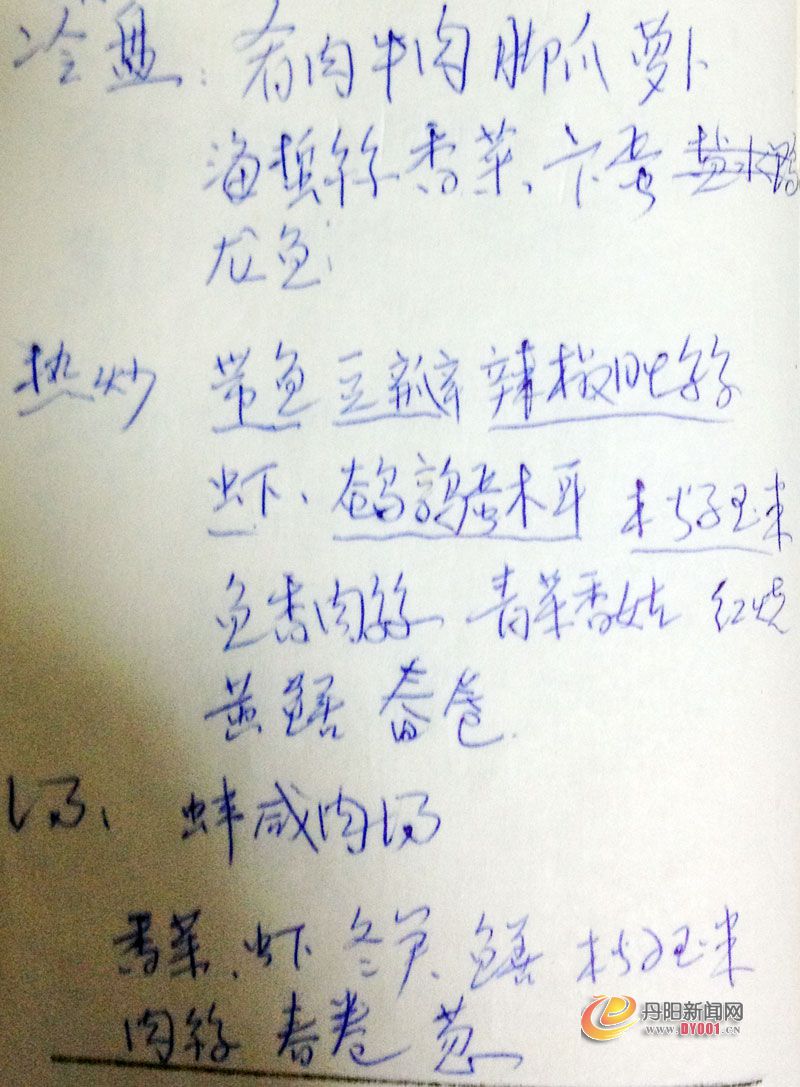 冷盘:肴肉 牛肉 脚爪 萝卜
海蜇丝香菜、卞蛋 盐水鸭
尤鱼
热炒 带鱼 豆瓣 辣椒肚丝
虾、鹌鹑蛋木耳 松子玉米
鱼香肉丝 青菜香姑 红烧
黄鳝 春卷
汤、蚌咸肉汤
香菜、虾 冬笋、鳝 松子玉米
肉丝 春卷 葱
丹阳新闻网
WWW.DY001.CN